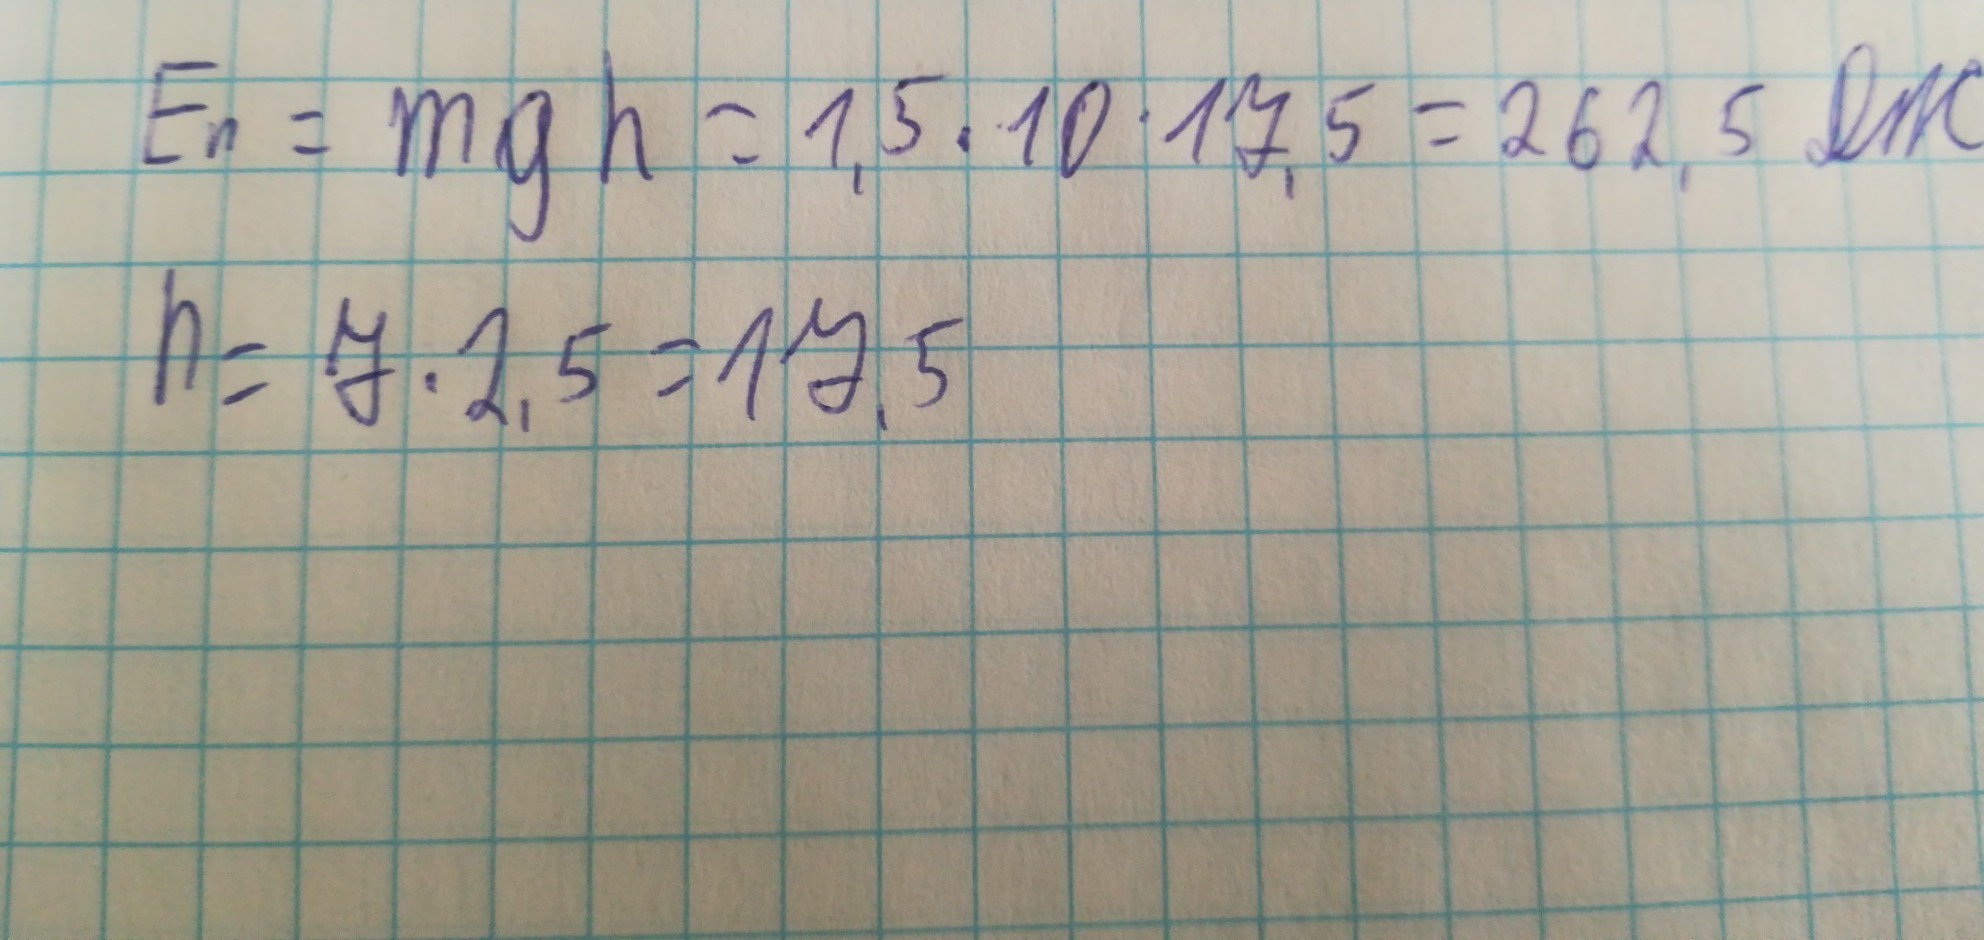 Eп = mgh = 1,5 · 10 · 17,5 = 262,5 Дж
h = 7 · 2,5 = 17,5